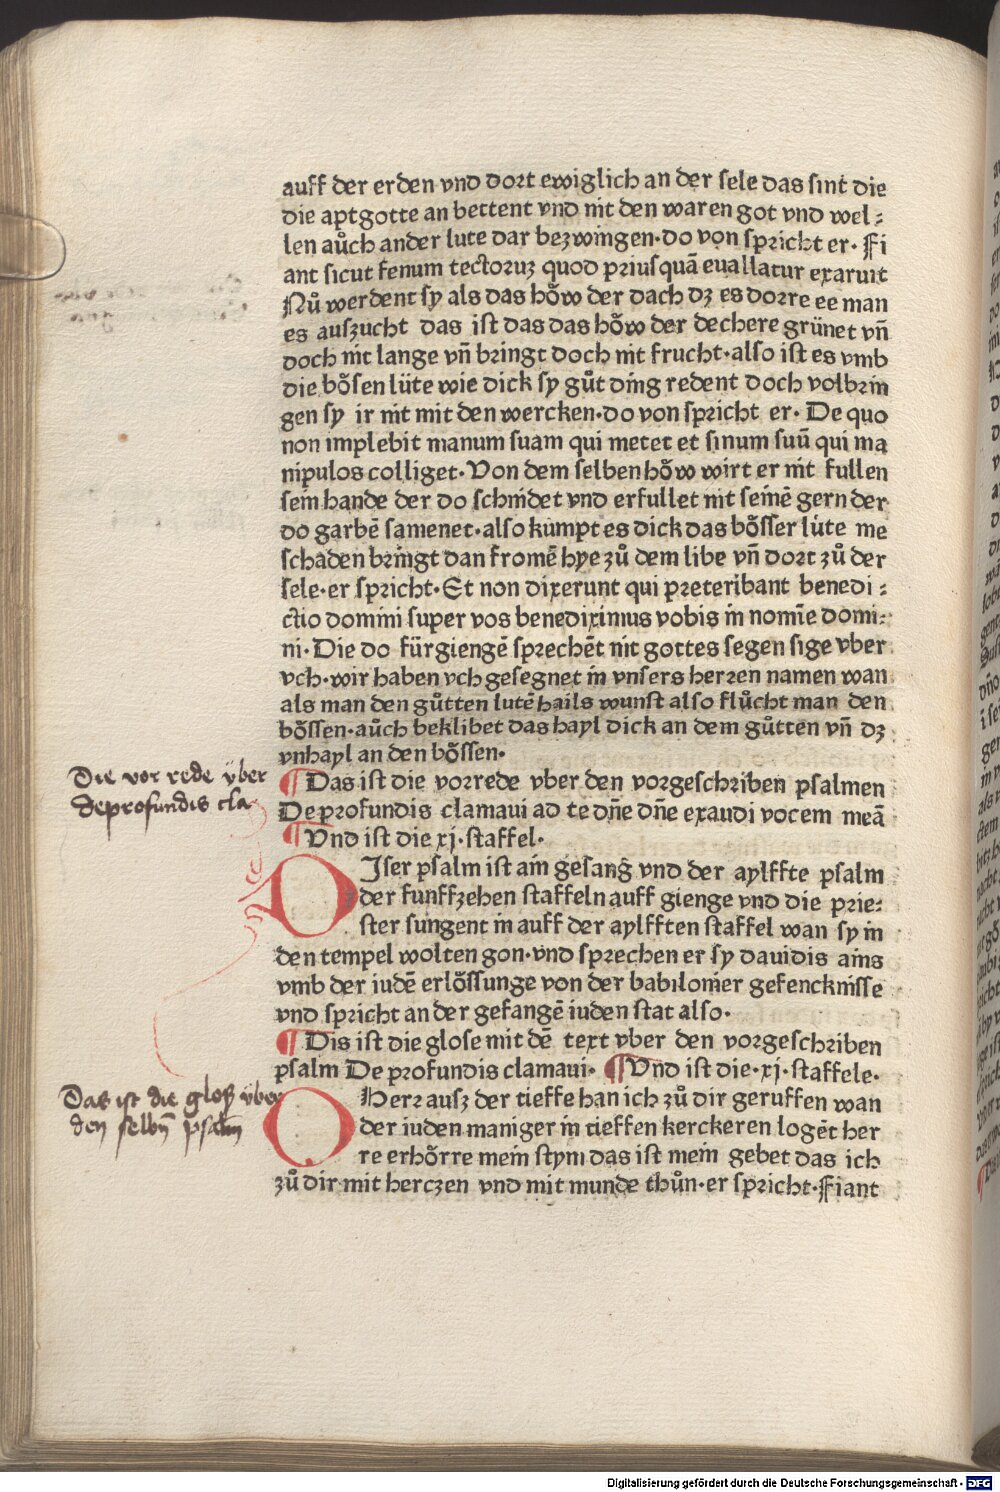 auff der erden vnd dort ewiglich an der sele das sint die
die aptgotte an bettent vnd nit den waren got vnd wel⸗
len auͦch ander lute dar bezwingen·do von spricht er· Fi
ant sicut fenum tectoruz quod priusquā euallatur exaruit
Nuͦ werdent sy als das hoͤw der dach dz es dorre ee man
es auszucht das ist das das hoͤw der dechere gruͤnet vn̄
doch nit lange vn̄ bringt doch nit frucht·also ist es vmb
die boͤsen luͤte wie dick sy guͦt ding redent doch volbrin
gen sy ir nit mit den wercken·do von spricht er· De quo
non implebit manum suam qui metet et sinum suū qui ma
nipulos colliget·Von dem selben hoͤw wirt er nit fullen
sein hande der do schnidet vnd erfullet nit seinē gern der
do garbē samenet·also kumpt es dick das boͤsser luͤte me
schaden bringt dan fromē hye zuͦ dem libe vn̄ dort zuͦ der
sele·er spricht·Et non dixerunt qui preteribant benedi⸗
ctio domini super vos benediximus vobis in nomīe domi⸗
ni·Die do fuͤrgiengē sprechēt nit gottes segen sige vber
vch·wir haben vch gesegnet in vnsers herren namen wan
als man den guͦtten lutē hails wunst also fluͦcht man den
boͤssen·auͦch beklibet das hayl dick an dem guͦtten vn̄ dz
vnhayl an den boͤssen·
Die vor rede vͤber
deprofundis cla
¶ Das ist die vorrede vber den vorgeschriben psalmen
De profundis clamaui ad te dn̄e dn̄e exaudi vocem meā
¶ Vnd ist die xj·staffel·
DIser psalm ist ain gesang vnd der aylffte psalm
der funffzehen staffeln auff gienge vnd die prie⸗
ster sungent in auff der aylfften staffel wan sy in
den tempel wolten gon·vnd sprechen er sy dauidis ains
vmb der iudē erloͤssunge von der babilonier gefencknisse
vnd spricht an der gefangē iuden stat also·
¶ Dis ist die glose mit dē text vber den vorgeschriben
psalm De profundis clamaui· ¶ Vnd ist die·xj·staffele·
Das ist die gloß vͤber
den selbn̄ psalm
O Herr ausz der tieffe han ich zuͦ dir geruffen wan
der iuden maniger in tieffen kerckeren logēt her
re erhoͤrre mein stym das ist mein gebet das ich
zuͦ dir mit herczen vnd mit munde thuͦn·er spricht·Fiant
Digitalisierung gefördert durch die Deutsche Forschungsgemeinschaft - DFG